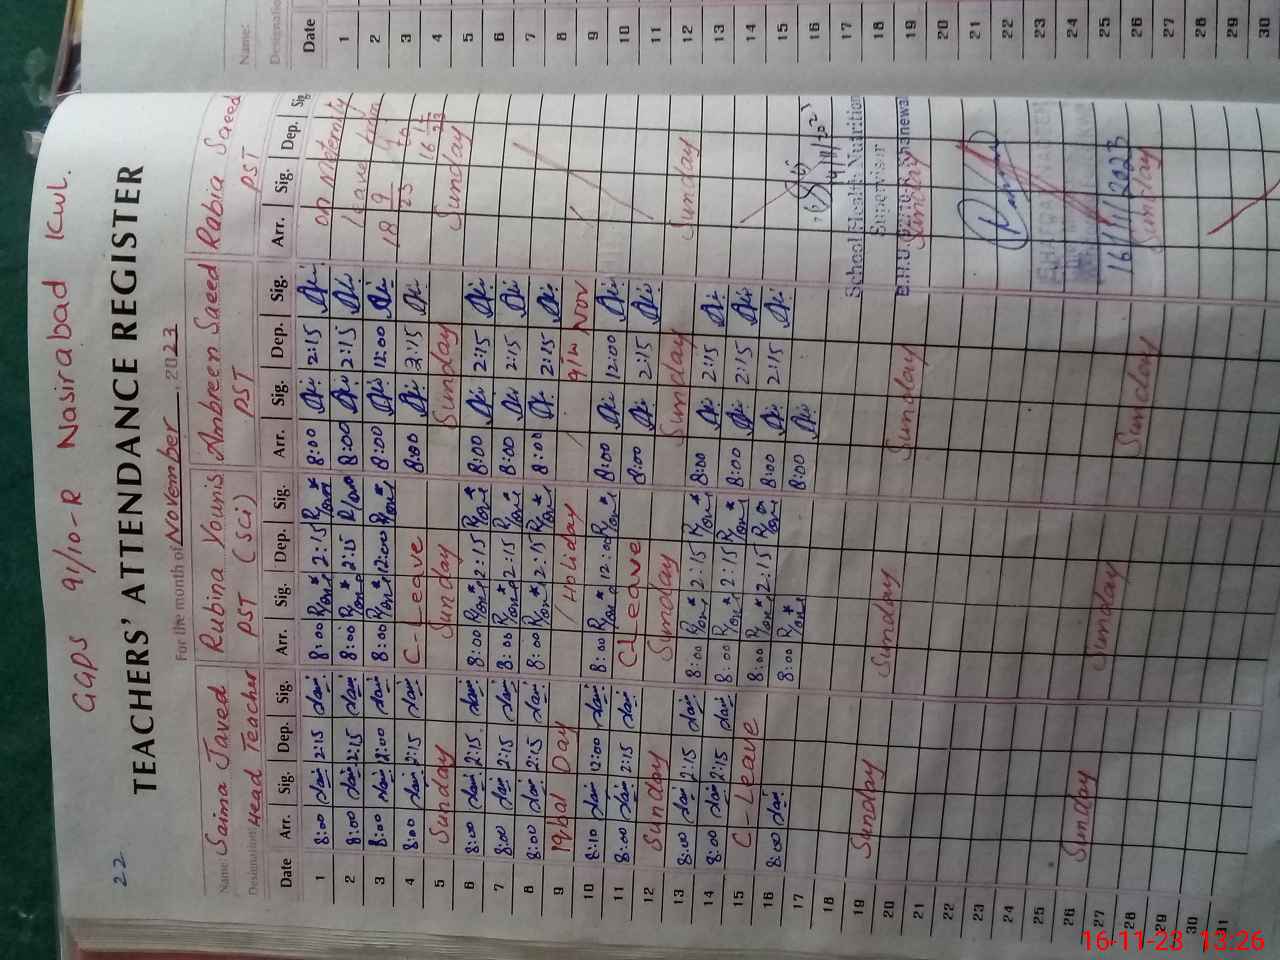 GGPS 91/10-R Nasirabad Kwl.
22
TEACHERS' ATTENDANCE REGISTER
For the month of November 2023
Name: Saima Javed Rubina Younis Ambreen Saeed Rabia Saeed
Designation: Head Teacher PST (Sci) PST PST
Date Arr. Sig. Dep. Sig. Arr. Sig. Dep. Sig. Arr. Sig. Dep. Sig. Arr. Sig. Dep. Sig
1 8:00 2:15 8:00 2:15 8:00 2:15 on Meternity
2 8:00 2:15 8:00 2:15 8:00 2:15 leave from
3 8:00 12:00 8:00 12:00 8:00 12:00
4 8:00 2:15 C-Leave 8:00 2:15
5 Sunday Sunday Sunday Sunday
6 8:00 2:15 8:00 2:15 8:00 2:15
7 8:00 2:15 8:00 2:15 8:00 2:15
8 8:00 2:15 8:00 2:15 8:00 2:15
9 Iqbal Day Holiday 9th Nov
10 8:10 12:00 8:00 12:00 8:00 12:00
11 8:00 2:15 C-Leave 8:00 2:15
12 Sunday Sunday Sunday Sunday
13 8:00 2:15 8:00 2:15 8:00 2:15
14 8:00 2:15 8:00 2:15 8:00 2:15
15 C-Leave 8:00 2:15 8:00 2:15
16 8:00 8:00 8:00
17
18
19 Sunday Sunday Sunday Sunday
20
21
22
23
24
25
26 Sunday Sunday Sunday Sunday
27
28
29
30
31
School Health & Nutrition
Supervisor
16/11/2023
Name:
Designation
Date
1
2
3
4
5
6
7
8
9
10
11
12
13
14
15
16
17
18
19
20
21
22
23
24
25
26
27
28
29
30
16-11-23 13:26